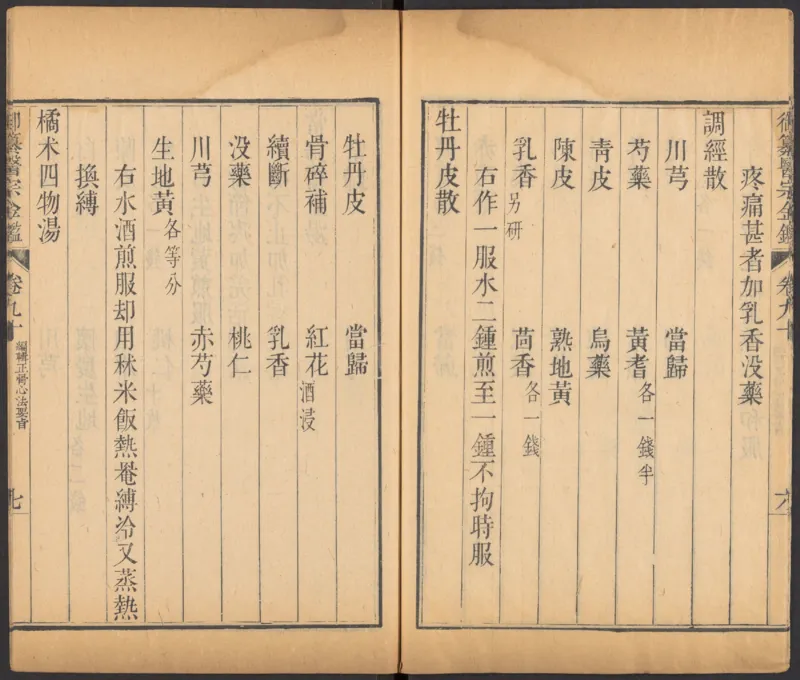 御纂醫宗金鑑 卷九十 六
疼痛甚者加乳香没藥
調經散
川芎 當歸
芍藥 黃耆各一錢半
青皮 烏藥
陳皮 熟地黃
乳香另研 茴香各一錢
右作一服水二鍾煎至一鍾不拘時服
牡丹皮散
牡丹皮 當歸
骨碎補 紅花酒浸
續斷 乳香
没藥 桃仁
川芎 赤芍藥
生地黃各等分
右水酒煎服却用秫米飯熱罨縛冷又蒸熱
換縛
橘术四物湯
御纂醫宗金鑑 卷九十 編輯正骨心法要旨 七